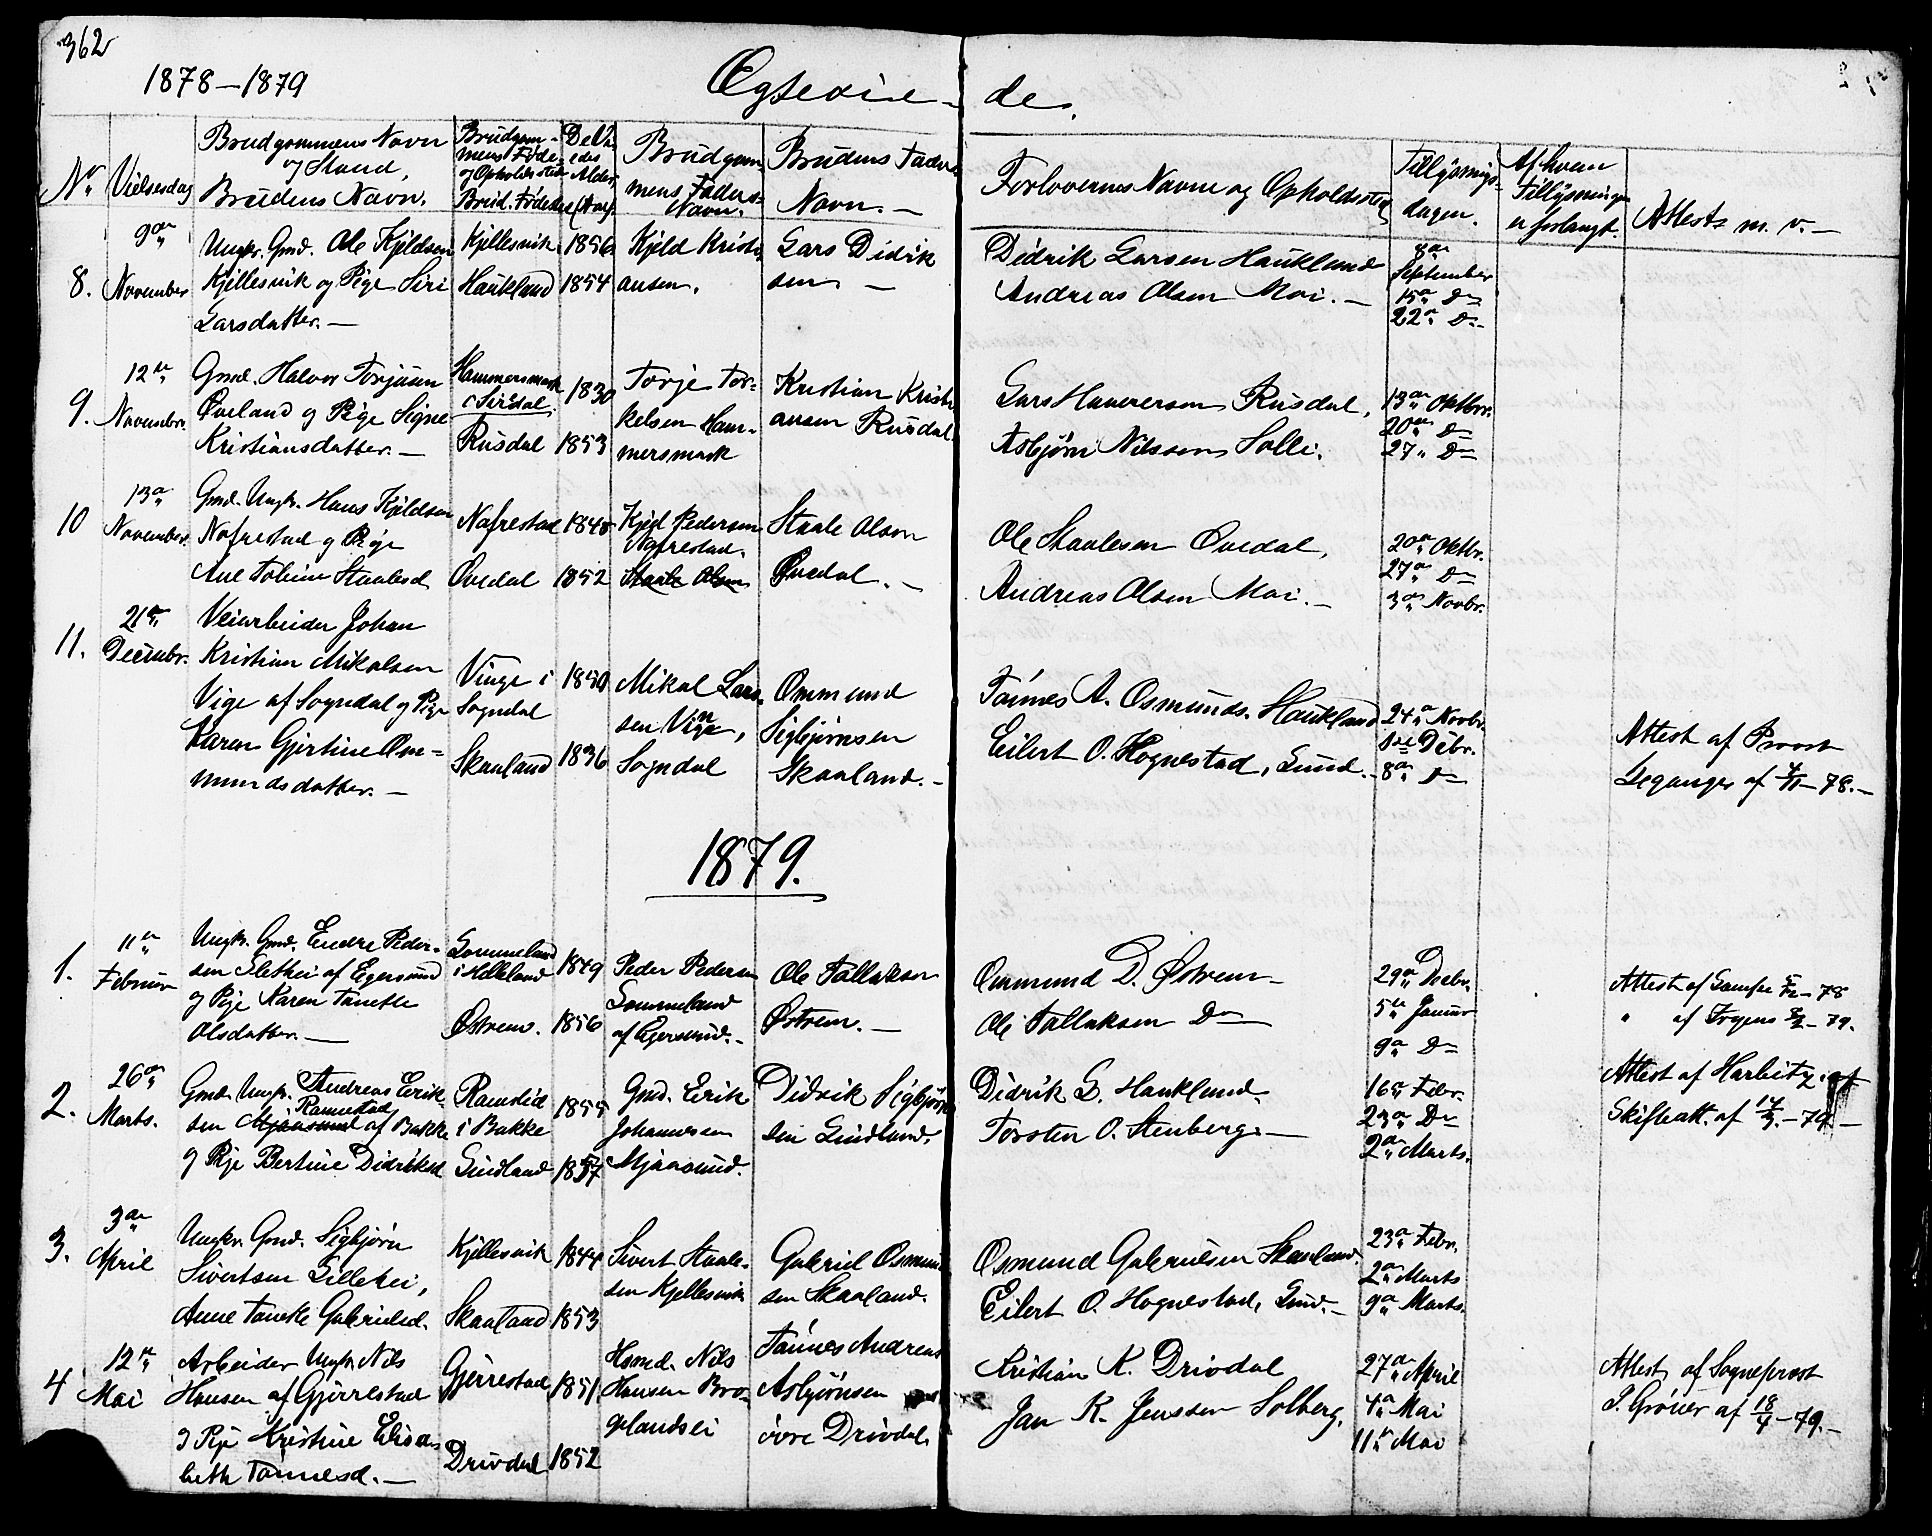 362
1878–1879
Ægtevie-
de.
No
Vielsesdag
Brudgommens Navn
og Stand,
Brudens Navn.
Brudgom-
mens Føde-
og Opholdssted
Brud. Fødested
De Vi-
edes
Alder
(Aar)
Brudgom-
mens Faders
Navn.
Brudens Faders
Navn. –
Forlovernes Navne og Opholdssted
Tillysnings-
dagen.
Af hvem
Tillysningen
er forlangt.
Attester m. v. –
8.
9de
November
Ungk. Gmd. Ole Kjeldsen
Kjellesvik og Pige Siri
Larsdatter. –
Kjellesvik
Haukland
1856
1854
Kjeld Kristi-
ansen.
Lars Didrik
sen –
Didrik Larsen Haukland
Andreas Olsen Moi. –
8de
September
15de Do
22de Do
9.
12te
Novembr.
Gmd. Halvor Torjusen
Øveland og Pige Signe
Kristiansdatter. –
Hammersmark
i Siredal
Rusdal
1830
1853
Torje Tor-
kelsen Ham-
mersmark
Kristian Kristi-
ansen Rusdal.
Lars Haaversen Rusdal,
Asbjørn Nilssen Solli.
13de Oktbr.
20de Do
27. Do
10
13de
November.
Gmd. Ungk. Hans Kjeldsen
Nafrestad og Pige
Ane Toline Staalesd.
Nafrestad
Øvedal
1848
1852
Kjeld Pedersen
Nafrestad.
Staale Olsen
Staale Olsen
Øvedal. –
Ole Staalesen Øvedal,
Andreas Olsen Moi. –
20de Oktbr.
27de Do
3de Novbr.
11.
21de
Decembr.
Veiarbeider Johan
Kristian Mikalsen
Vige af Sogndal og Pige
Karen Gjertine Om-
mundsdatter. –
Vinge i
Sogndal
Skaaland
1850
1836
Mikal Lars-
sen Vige,
Sogndal
Ommund
Sigbjørnsen
Skaaland. –
Tønnes A. Osmunds. Haukland
Eilert O. Hognestad, Lund. –
24de Novbr.
1ste Dcbr.
8de Do
Attest af Provst
Leganger af 4/11 – 78. –
1879.
1.
11te
Februar
Ungk. Gmd. Endre Peder-
sen Slethei af Egersund
og Pige Karen Tanette
Olsdatter. –
Sommeland
i Helleland
Østrem.
1849
1856
Peder Pedersen
Sommeland
af Egersund. –
Ole Tallaksen
Østrem. –
Ommund D. Østrem –
Ole Tallaksen Do
29de Decbr.
5te Januar
9de Do
" af
– 78
– 79.
2.
26de
Marts.
Gmd. Ungk. Andreas Erik-
Ramstad
sen Mjaasund af Bakke
og Pige Bertine Didriksd
Ramslid
i Bakke
Lindland
1855
1857
Gmd. Erik
Johannesen
Mjaasund.
Didrik Sigbjørn-
sen Lindland.
Didrik L. Haukland.
Torsten O. Stenberg. –
16de Febr.
23de Do
2de Marts.
Attest af Harbitz af
Skifteatt. af 17/3. – 79 –
3.
3de
April
Ungk. Gmd. Sigbjørn
Sivertsen Lillehei,
Anne Taneke Gabrielsd.
Kjellesvik
Skaaland
1844
1853
Sivert Staale-
sen Kjellesvik
Gabriel Osmund-
sen Skaaland.
Osmund Gabrielsen Skaaland.
Eilert O. Hognestad, Lund. –
23de Febr.
2de Marts
9de Marts.
4
12te
Mai
Arbeider Ungk. Nils
Hansen af Gjerrestad
og Pige Kristine Elisa-
beth Tønnesd. –
Gjerrestad
Drivdal
1851
1852
Hsmd. Nils
Hansen Bro-
gelandsei
Tønnes Andreas
Asbjørnsen
øvre Drivdal.
Kristian K. Drivdal
Jan K. Jenssen Solberg.
27de April
4de Mai
11te Mai
Attest af Sogneprest
P. Grøner af 18/4 – 79. –